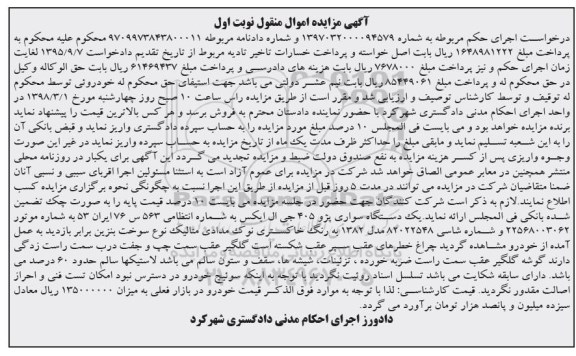 آگهی مزایده اموال منقول نوبت اول
درخواست اجرای حکم مربوطه به شماره ۱۳۹۷۰۳۲۰۰۰۰۹۴۵۷۹ و شماره دادنامه مربوطه ۹۷۰۹۹۷۳۸۴۳۸۰۰۰۱۱ محکوم علیه محکوم به
پرداخت مبلغ ۱۶۴۸۹۸۱۲۲۲ ریال بابت اصل خواسته و پرداخت خسارات تاخیر تادیه مربوط از تاریخ تقدیم دادخواست ۱۳۹۵/۹/۷ لغایت
زمان اجرای حکم و نیز پرداخت مبلغ ۷۶۷۸۰۰۰ ریال بابت هزینه های دادرسی و پرداخت مبلغ ۶۱۴۶۹۴۳۷ ریال بابت حق الوکاله وکیل
در حق محکوم له و پرداخت مبلغ ۸۵۴۴۹۰۶۱ ریال بابت نیم عشر دولتی می باشد جهت استیفای حق محکوم له خودروئی توسط محکوم
له توقیف و توسط کارشناس توصیف و ارزیابی شده مقرر است از طریق مزایده راس ساعت ۱۰ صبح روز چهارشنبه مورخ ۱۳۹۸/۳/۱ در
واحد اجرای احکام مدنی دادگستری شهرکرد با حضور نماینده دادستان محترم به فروش برسد. هرکس بالاترین قیمت را پیشنهاد نماید
برنده مزایده خواهد بود و می بایست فی المجلس ۱۰ درصد مبلغ مورد مزایده را به حساب سپرده دادگستری واریز نماید و قبض بانکی آن
را به این شعبه تسلیم نماید و مابقی مبلغ را حداکثر ظرف مدت یک ماه از تاریخ مزایده به حساب سپرده واریز نماید در غیر این صورت
وجوه واریزی پس از کسر هزینه مزایده به نفع صندوق دولت ضبط و مزایده تجدید می گردد. این آگهی برای یکبار در روزنامه محلی
منتشر همچنین در معابر عمومی الصاق خواهد شد شرکت در مزایده برای عموم آزاد است به استثنا مسئولین اجرا اقربای سببی و نسبی آنان
ضمنا متقاضیان شرکت در مزایده می توانند در مدت ۵ روز قبل از مزایده از طریق این اجرا نسبت به چگونگی نحوه برگزاری مزایده کسب
اطلاع نمایند. لازم به ذکر است شرکت کنندگان حاضر در جلسه مزایده می بایست ۱۰ درصد قیمت پایه را به صورت چک تضمین
شده بانکی فی المجلس ارائه نماید. یک دستگاه سواری پژو ۴۰۵ جی ال ایکس به شماره انتظامی ۵۶۳ س ۷۶ ایران ۵۳ به شماره موتور
۲۲۵۶۸۰۰۳۰۶۲ و شماره شاسی ۸۲۰۲۲۵۴۸ مدل ۱۳۸۲ به رنگ خاکستری نوک مدادی متالیک نوع سوخت بنزین برابر بازدید به عمل
آمده از خودرو مشاهده گردید چراغ خطرهای عقب سپر عقب شکسته است گلگیر عقب سمت چپ و جفت درب سمت راست زدگی
دارند گوشه گلگیر عقب سمت راست ضربه خورده، تزئینات، شیشه ها، سقف و ستون سالم می باشد لاستیکها سالم حدود ۶۰ درصد می
باشد. دارای سابقه شکایت می باشد تسلسل اسناد رویت نگردید با توجه به اینکه سوئیچ خودرو در دسترس نبود امکان تست فنی و احراز
اصالت مقدور نگردید. قیمت کارشناسی: لذا با توجه به موارد فوق الذکر قیمت خودرو در بازار فعلی به میزان ۱۳۵۰۰۰۰۰۰ ریال معادل
سیزده میلیون و پانصد هزار تومان برآورد می گردد.
دادورز اجرای احکام مدنی دادگستری شهرکرد